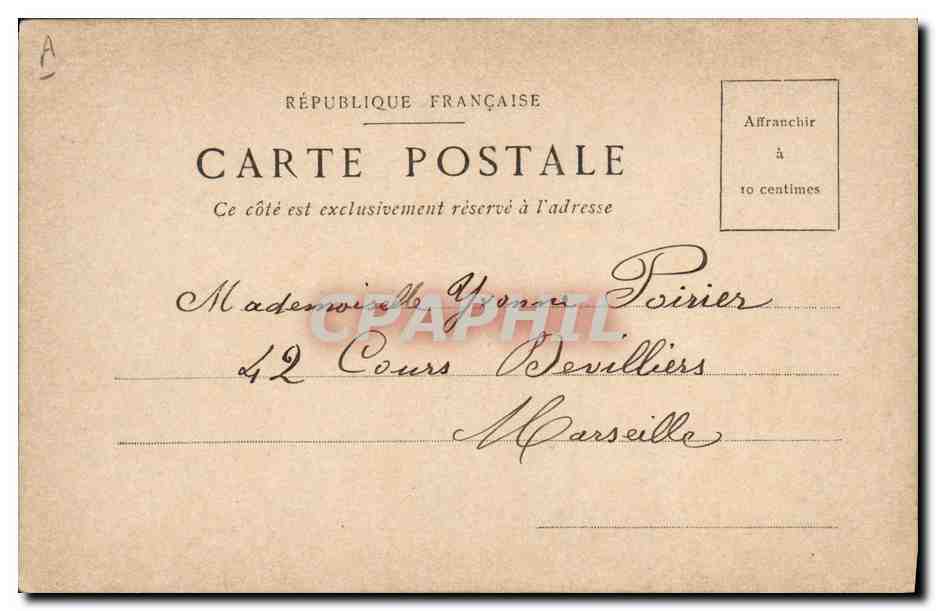 A
RÉPUBLIQUE FRANÇAISE
CARTE POSTALE
Ce côté est exclusivement réservé à l'adresse
Affranchir
à
10 centimes
Mademoiselle Yvonne Poirier
CPAPHIL
42 Cours Devilliers
Marseille